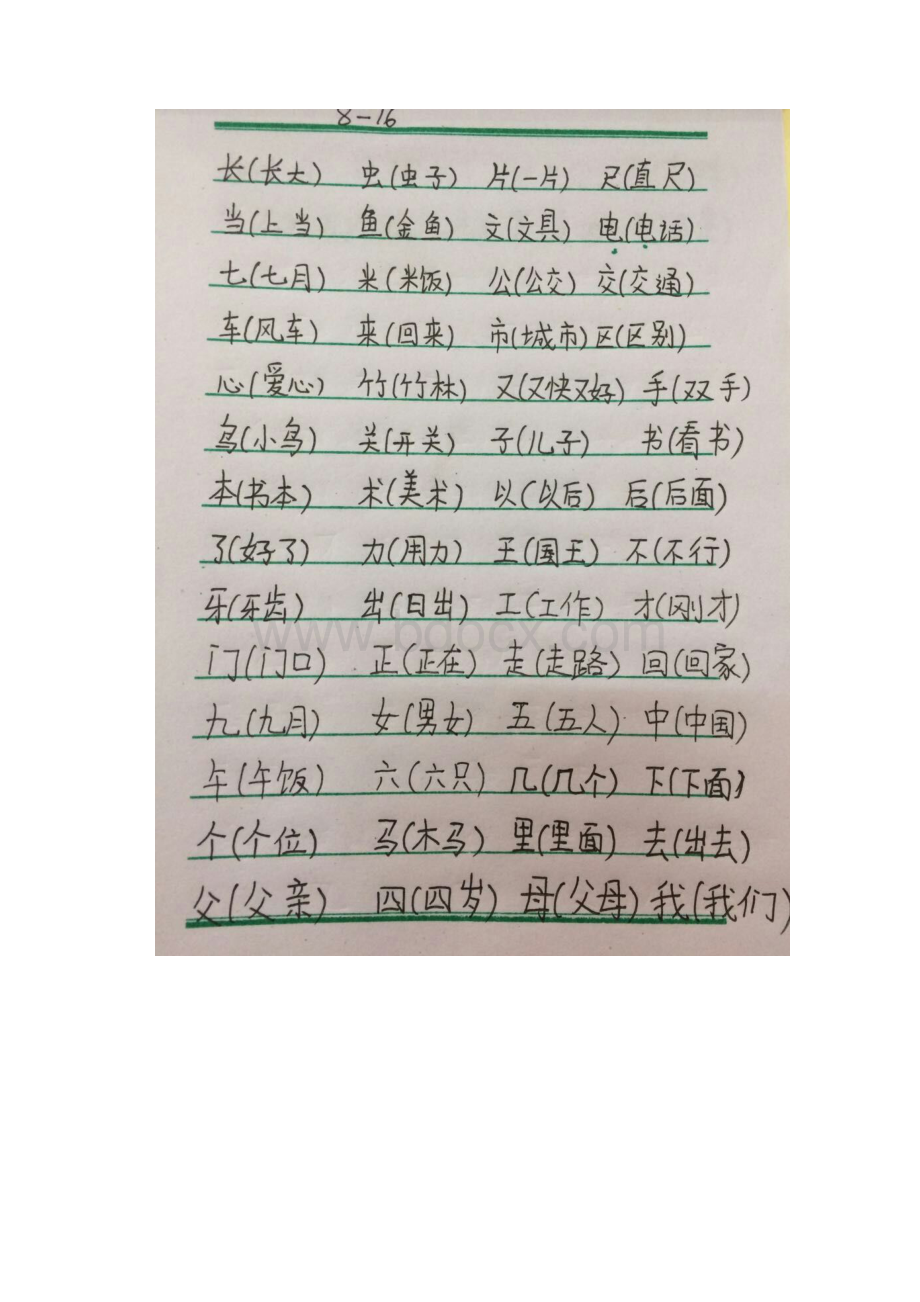 8-16
长(长大) 虫(虫子) 片(一片) 尺(直尺)
当(上当) 鱼(金鱼) 文(文具) 电(电话)
七(七月) 米(米饭) 公(公交) 交(交通)
车(风车) 来(回来) 市(城市) 区(区别)
心(爱心) 竹(竹林) 又(又快又好) 手(双手)
鸟(小鸟) 关(开关) 子(儿子) 书(看书)
本(书本) 术(美术) 以(以后) 后(后面)
了(好了) 力(用力) 王(国王) 不(不行)
牙(牙齿) 出(日出) 工(工作) 才(刚才)
www.bdocx.com
门(门口) 正(正在) 走(走路) 回(回家)
九(九月) 女(男女) 五(五人) 中(中国)
午(午饭) 六(六只) 几(几个) 下(下面)
个(个位) 马(木马) 里(里面) 去(出去)
父(父亲) 四(四岁) 母(父母) 我(我们)